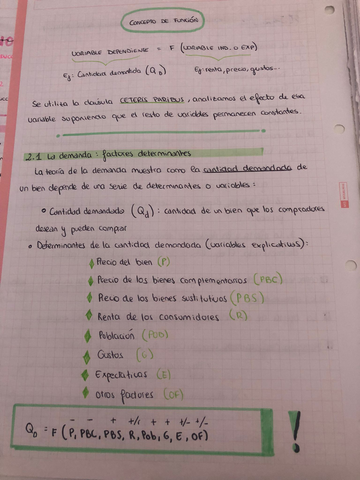 CONCEPTO DE FUNCIÓN
VARIABLE DEPENDIENTE = F (VARIABLE IND. O EXP)
Ej: Cantidad demandada (QD) Ej: renta, precio, gustos...
Se utiliza la claúsula CETERIS PARIBUS, analizamos el efecto de esa
variable suponiendo que el resto de variables permanecen constantes.
2.1 La demanda: factores determinantes
La teoría de la demanda muestra como la cantidad demandada de
un bien depende de una serie de determinantes o variables:
Cantidad demandada (Qd): cantidad de un bien que los compradores
desean y pueden comprar
Determinantes de la cantidad demandada (variables explicativas):
Precio del bien (P)
Precio de los bienes complementarios (PBC)
Precio de los bienes sustitutivos (PBS)
Renta de los consumidores (R)
Población (POB)
Gustos (G)
Expectativas (E)
otros factores (OF)
- - + +/- + + +/- +/-
QD = F (P, PBC, PBS, R, Pob, G, E, OF) !